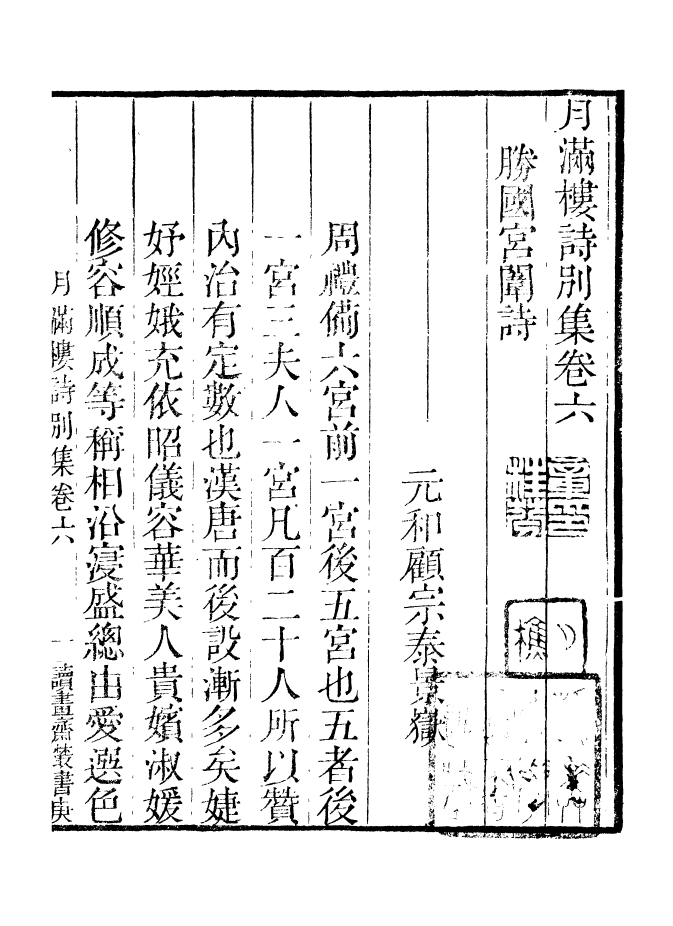 月滿樓詩別集卷六
勝國宮闈詩
元和顧宗泰景嶽
周禮備六宮前一宮後五宮也五者後
一宮三夫人一宮凡百二十人所以贊
內治有定數也漢唐而後設漸多矣婕
妤婬娥充依昭儀容華美人貴嬪淑媛
修容順成等稱相沿寖盛總由愛選色
月滿樓詩別集卷六
一
讀畫齋叢書庚